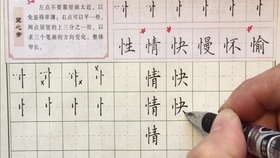 54
竖心旁
左点不要靠竖画太近，以
免显得单薄；右点可以平一些，
两点居竖的上三分之一处，以
求三个笔画的方向变化，整体
窄长。
性 情 快 慢 怀 愉
忄 忄 忄 忄 情 快
忄 忄 忄 忄 情 快
情